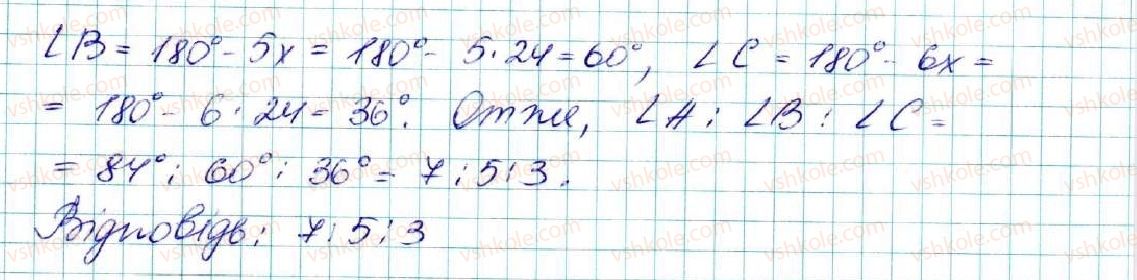 ∠B = 180° - 5x = 180° - 5·24 = 60°, ∠C = 180° - 6x =
= 180° - 6·24 = 36°. Отже, ∠A : ∠B : ∠C =
= 84° : 60° : 36° = 7 : 5 : 3.
Відповідь: 7 : 5 : 3
vshkole.com